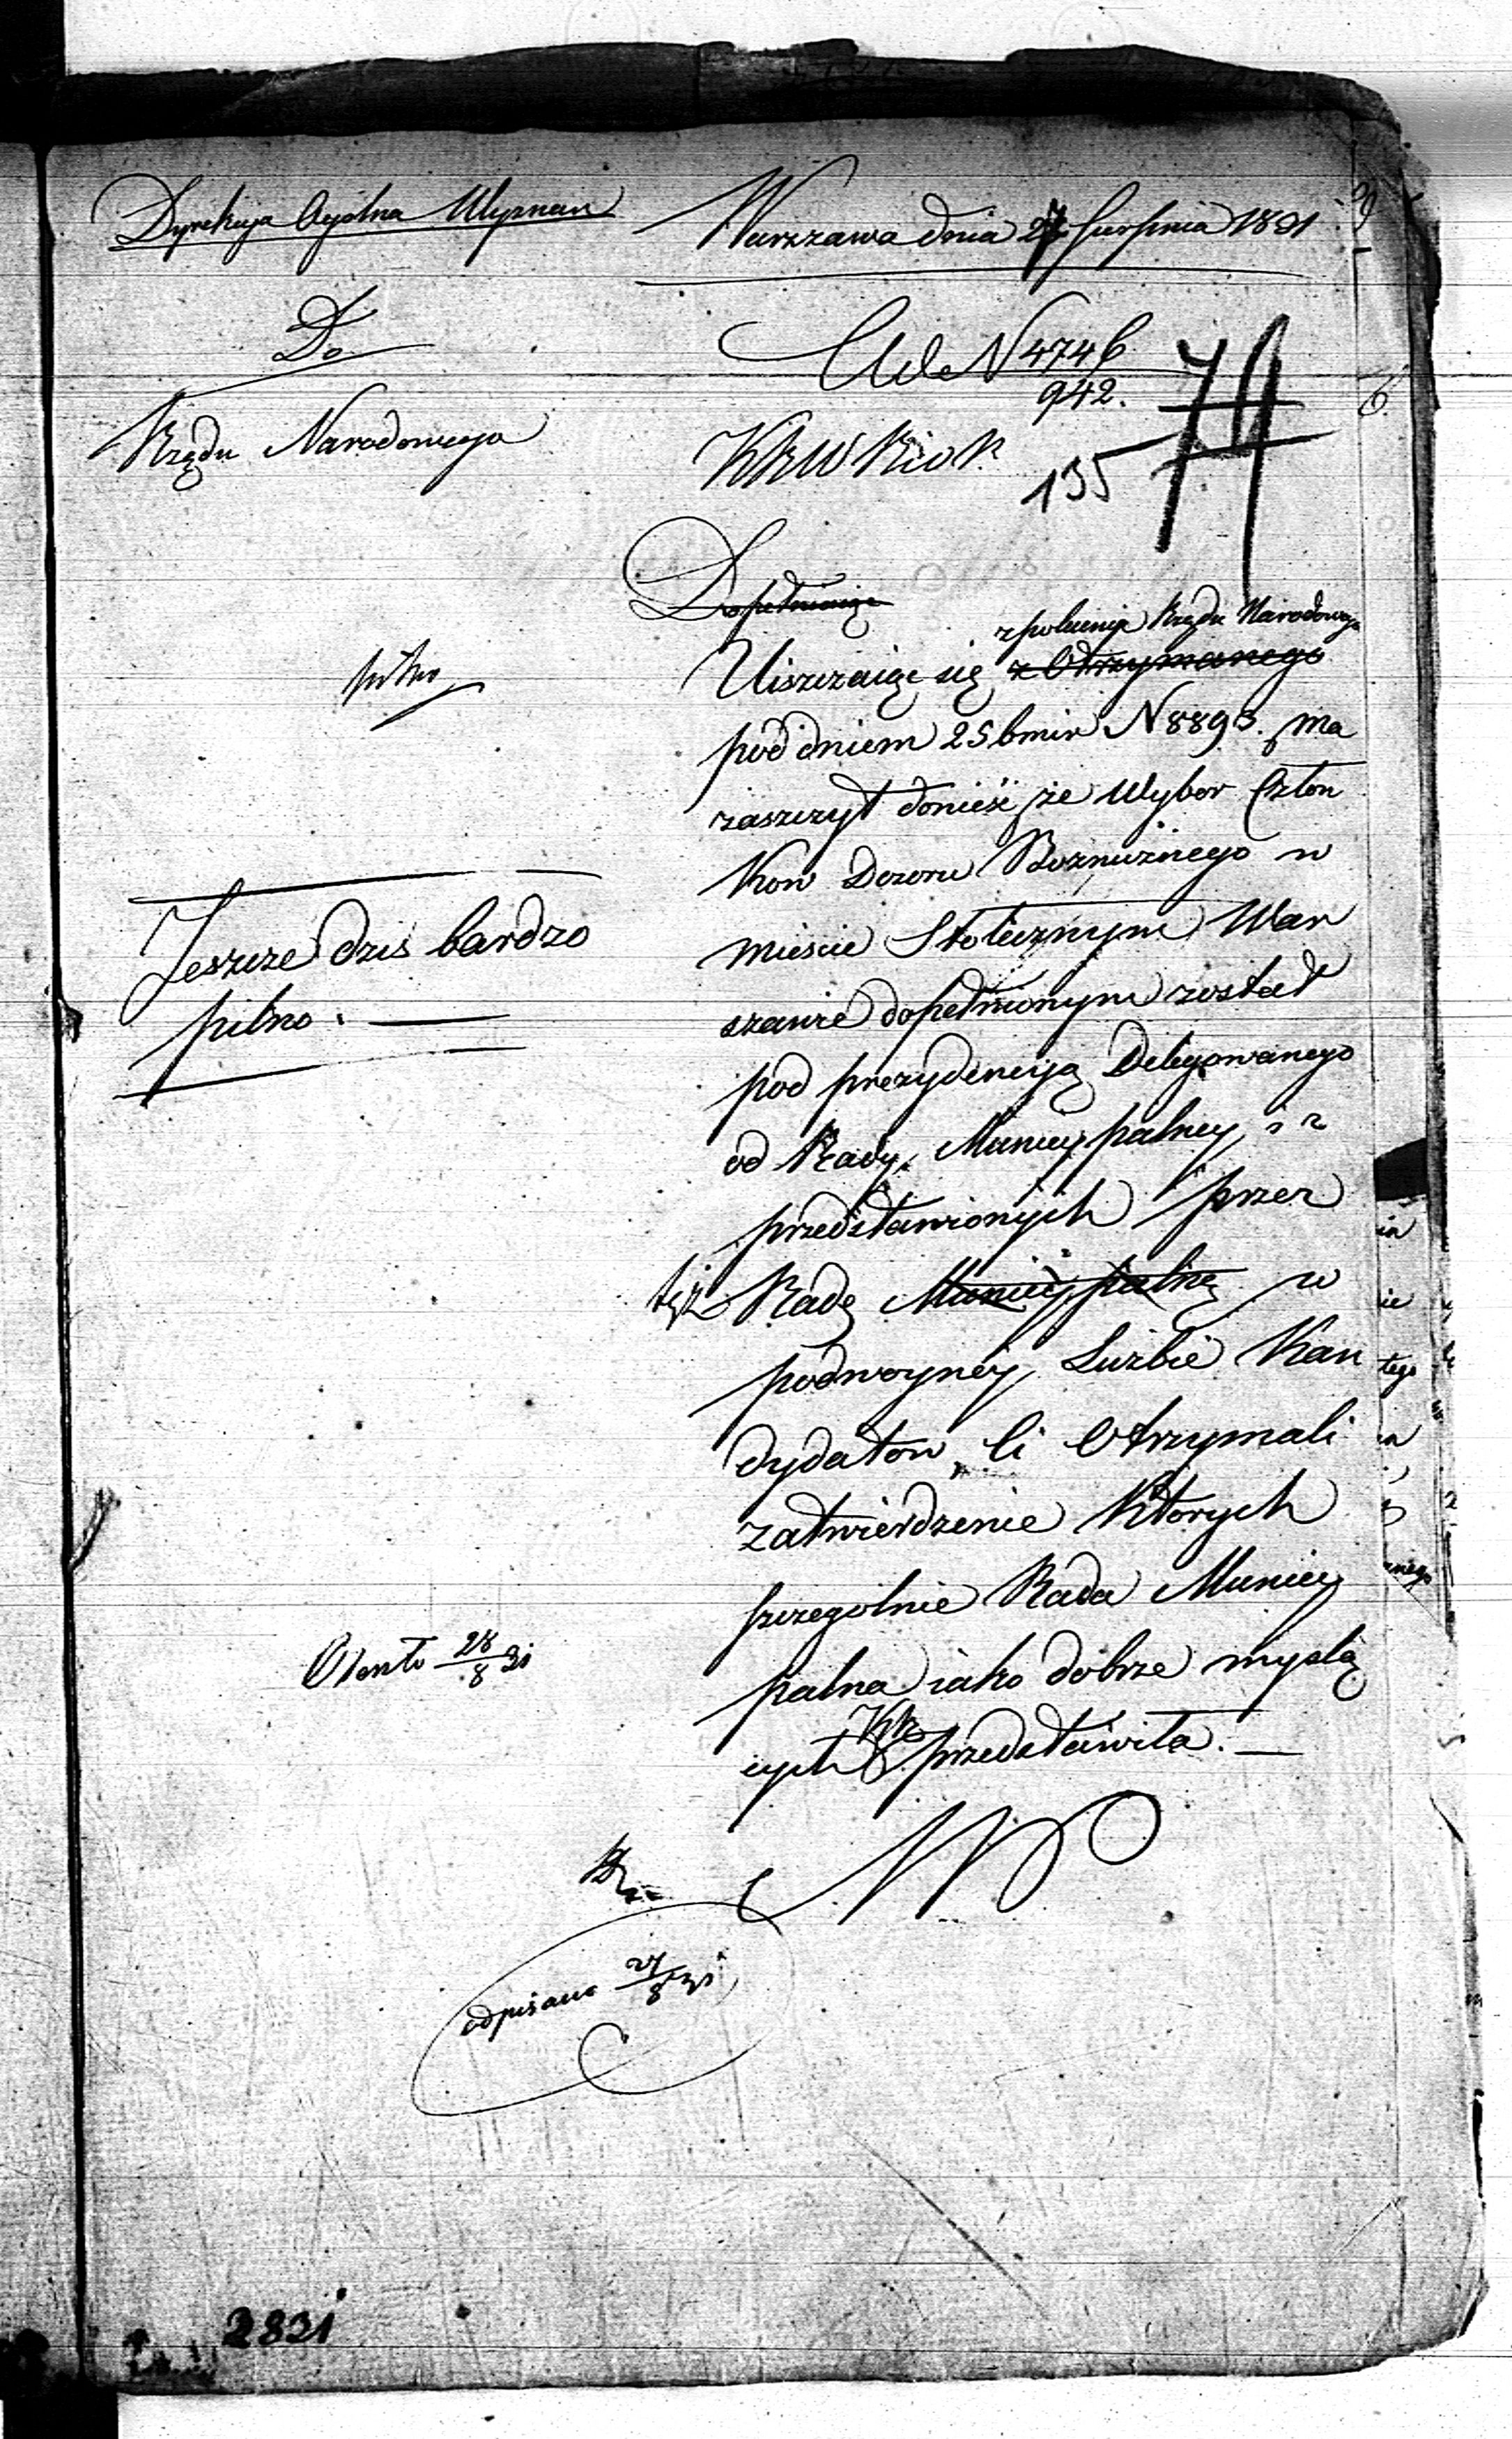 Dyrekcya Ogólna Wyznań
Warszawa dnia 27 Sierpnia 1831
Do
Rządu Narodowego
Ad N 4746
942.
74
135
KRWRiOP.
Dopełniaiąc
pilno
z polecenia Rządu Narodowego
Uiszczaiąc się z Otrzymanego
pod dniem 25 bmir N 8893. ma
zaszczyt donieść że Wybor Człon
kow Dozoru Boznicznego w
mieście Stołecznym War
szawie dopełnionym został
pod prezydencyą Delegowanego
od Rady Municypalney, i z
przedstawionych przez
tęż Radę Municypalną w
podwoyney Liczbie Kan
dydatow, Ci Otrzymali
zatwierdzenie Ktorych
szczegolnie Rada Municy
palna iako dobrze myślą
cych KR przedstawiła. —
Jeszcze dzis bardzo
pilno. —
28/8 31
odpisano 27/8 31
2831